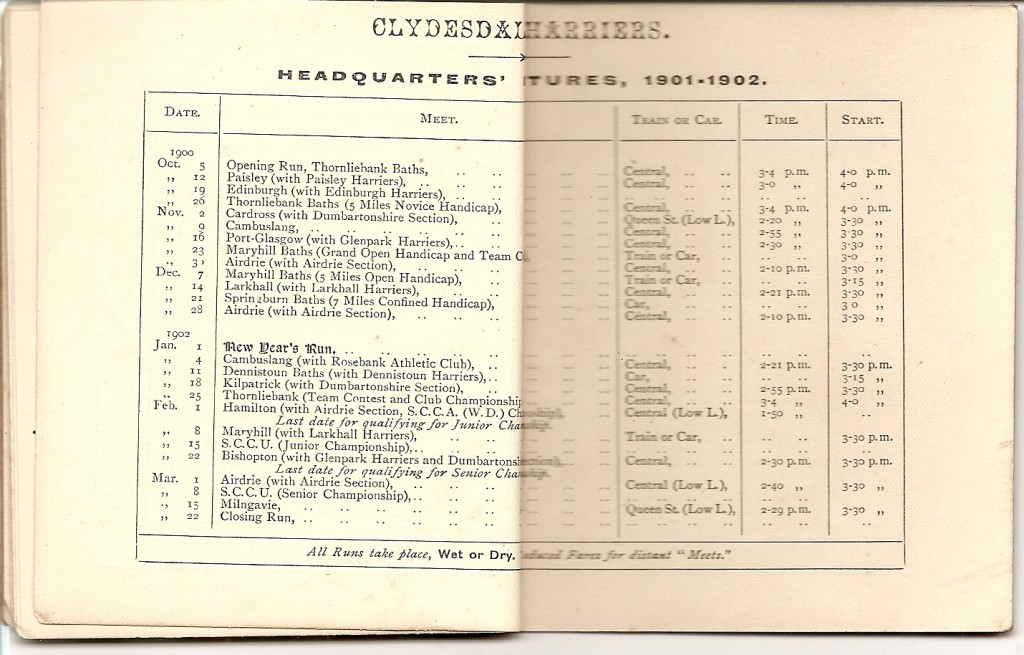 CLYDESDALHARRIERS.
HEADQUARTERS' TURES, 1901-1902.
DATE. MEET. TRAIN OR CAR. TIME. START.
1900
Oct. 5 Opening Run, Thornliebank Baths, .. .. Central, .. .. 3-4 p.m. 4-0 p.m.
,, 12 Paisley (with Paisley Harriers), .. .. .. Central, .. .. 3-0 ,, 4-0 ,,
,, 19 Edinburgh (with Edinburgh Harriers), .. .. .. .. .. ..
,, 26 Thornliebank Baths (5 Miles Novice Handicap), Central, .. .. 3-4 p.m. 4-0 p.m.
Nov. 2 Cardross (with Dumbartonshire Section), .. Queen St. (Low L.), 2-20 ,, 3-30 ,,
,, 9 Cambuslang, .. .. .. .. .. Central, .. .. 2-55 ,, 3-30 ,,
,, 16 Port-Glasgow (with Glenpark Harriers), .. .. Central, .. .. 2-30 ,, 3-30 ,,
,, 23 Maryhill Baths (Grand Open Handicap and Team C Train or Car, .. .. .. 3-0 ,,
,, 3 Airdrie (with Airdrie Section), .. .. .. Central, .. .. 2-10 p.m. 3-30 ,,
Dec. 7 Maryhill Baths (5 Miles Open Handicap), .. Train or Car, .. .. .. 3-15 ,,
,, 14 Larkhall (with Larkhall Harriers), .. .. Central, .. .. 2-21 p.m. 3-30 ,,
,, 21 Springburn Baths (7 Miles Confined Handicap), Car, .. .. .. .. 3 0 ,,
,, 28 Airdrie (with Airdrie Section), .. .. .. Central, .. .. 2-10 p.m. 3-30 ,,
1902
Jan. 1 New Year's Run, .. .. .. .. .. .. .. ..
,, 4 Cambuslang (with Rosebank Athletic Club), .. Central, .. .. 2-21 p.m. 3-30 p.m.
,, 11 Dennistoun Baths (with Dennistoun Harriers), .. Car, .. .. .. .. 3-15 ,,
,, 18 Kilpatrick (with Dumbartonshire Section), .. Central, .. .. 2-55 p.m. 3-30 ,,
,, 25 Thornliebank (Team Contest and Club Championship Central, .. .. 3-4 ,, 4-0 ,,
Feb. 1 Hamilton (with Airdrie Section, S.C.C.A. (W.D.) Ch Central (Low L.), 1-50 ,, ..
Last date for qualifying for Junior Cha
,, 8 Maryhill (with Larkhall Harriers), .. .. Train or Car, .. .. .. 3-30 p.m.
,, 15 S.C.C.U. (Junior Championship), .. .. .. .. .. .. ..
,, 22 Bishopton (with Glenpark Harriers and Dumbartonsh Central, .. .. 2-30 p.m. 3-30 p.m.
Last date for qualifying for Senior Cha
Mar. 1 Airdrie (with Airdrie Section), .. .. .. Central (Low L.), .. 2-40 ,, 3-30 ,,
,, 8 S.C.C.U. (Senior Championship), .. .. .. .. .. .. ..
,, 15 Milngavie, .. .. .. .. .. Queen St. (Low L.), 2-29 p.m. 3-30 ,,
,, 22 Closing Run, .. .. .. .. .. .. .. .. ..
All Runs take place, Wet or Dry. Fares for distant "Meets."